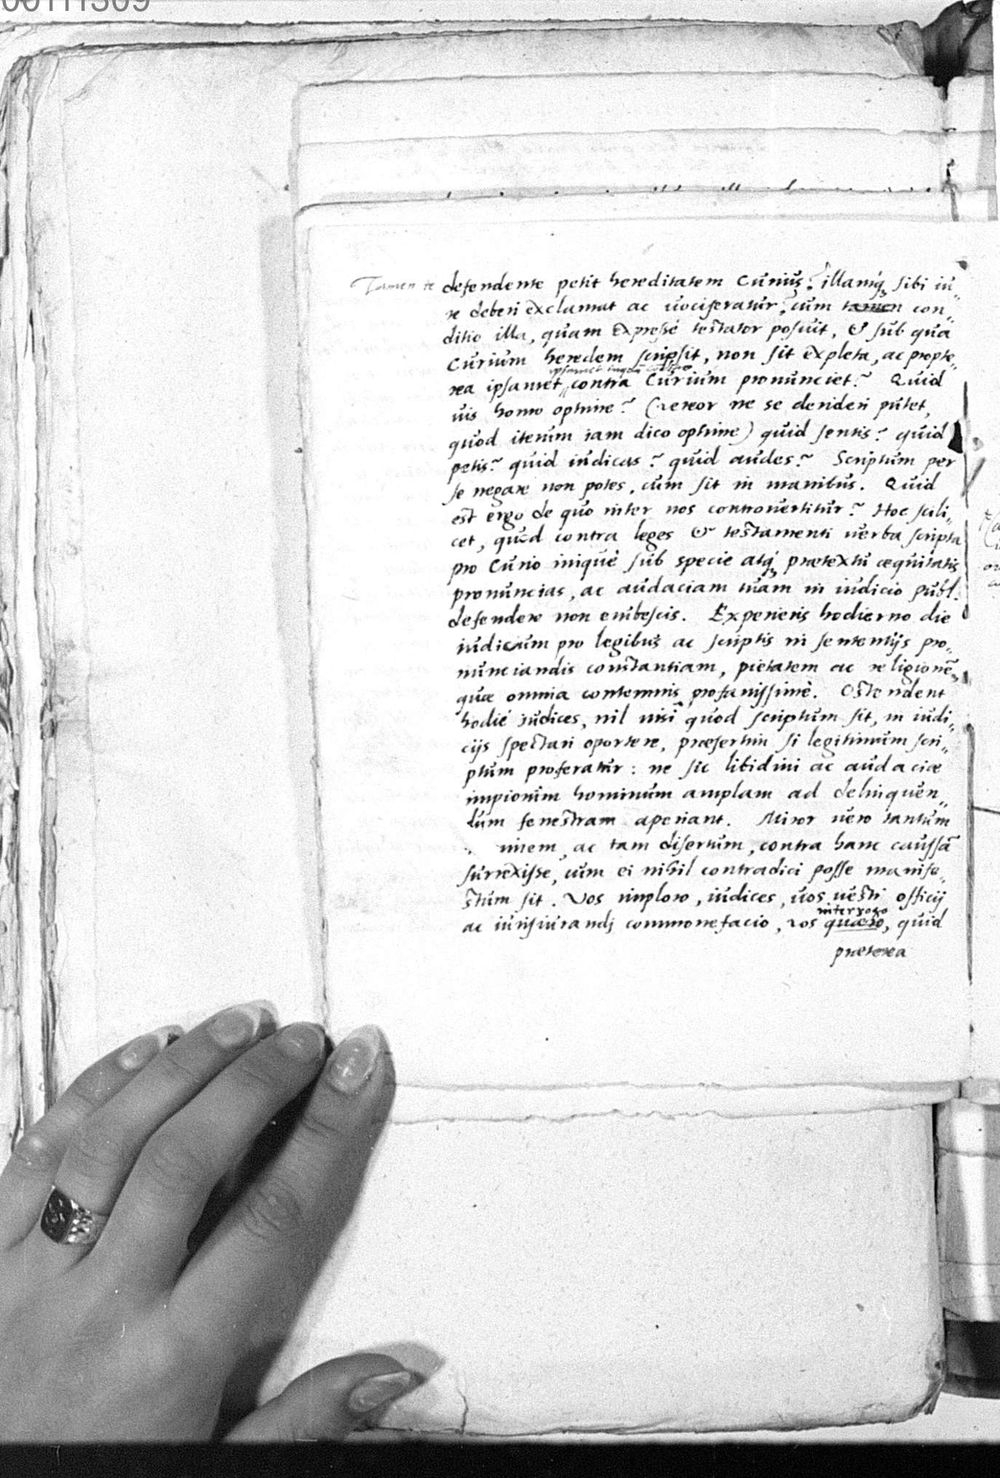 00111309
Tamen te defendente petit hereditatem Curius? illamq; sibi iu-
re deberi exclamat ac vociferatur? cum tamen con-
ditio illa, quam expresse testator posuit, & sub qua
Curium heredem scripsit, non sit expleta, ac propte-
rea ipsamet contra Curium pronunciet? Quid
vis homo optime? (vereor ne se derideri putet,
quod iterum iam dico optime) quid sentis? quid
petis? quid iudicas? quid audes? Scriptum per
se negare non potes, cum sit in manibus. Quid
est ergo de quo inter nos controvertitur? Hoc scili-
cet, quod contra leges & testamenti verba scripta
pro Curio inique sub specie atq; praetextu aequitatis
pronuncias, ac audaciam tuam in iudicio publ.
defendere non erubescis. Experieris hodierno die
iudicum pro legibus ac scriptis in sententijs pro-
nunciandis constantiam, pietatem ac religionē,
quae omnia contemnis profanissime. Ostendent
hodie iudices, nil nisi quod scriptum sit, in iudi-
cijs spectari oportere, praesertim si legitimum scri-
ptum proferatur: ne sic libidini ac audaciae
impiorum hominum amplam ad delinquen-
dum fenestram aperiant. Miror vero tantum
virem, ac tam disertum, contra hanc caussā
surrexisse, cum ei nihil contradici posse manife-
stum sit. Vos imploro, iudices, vos vestri officij
ac iurisiurandj commonefacio, vos quaero, quid
interrogo
praeterea